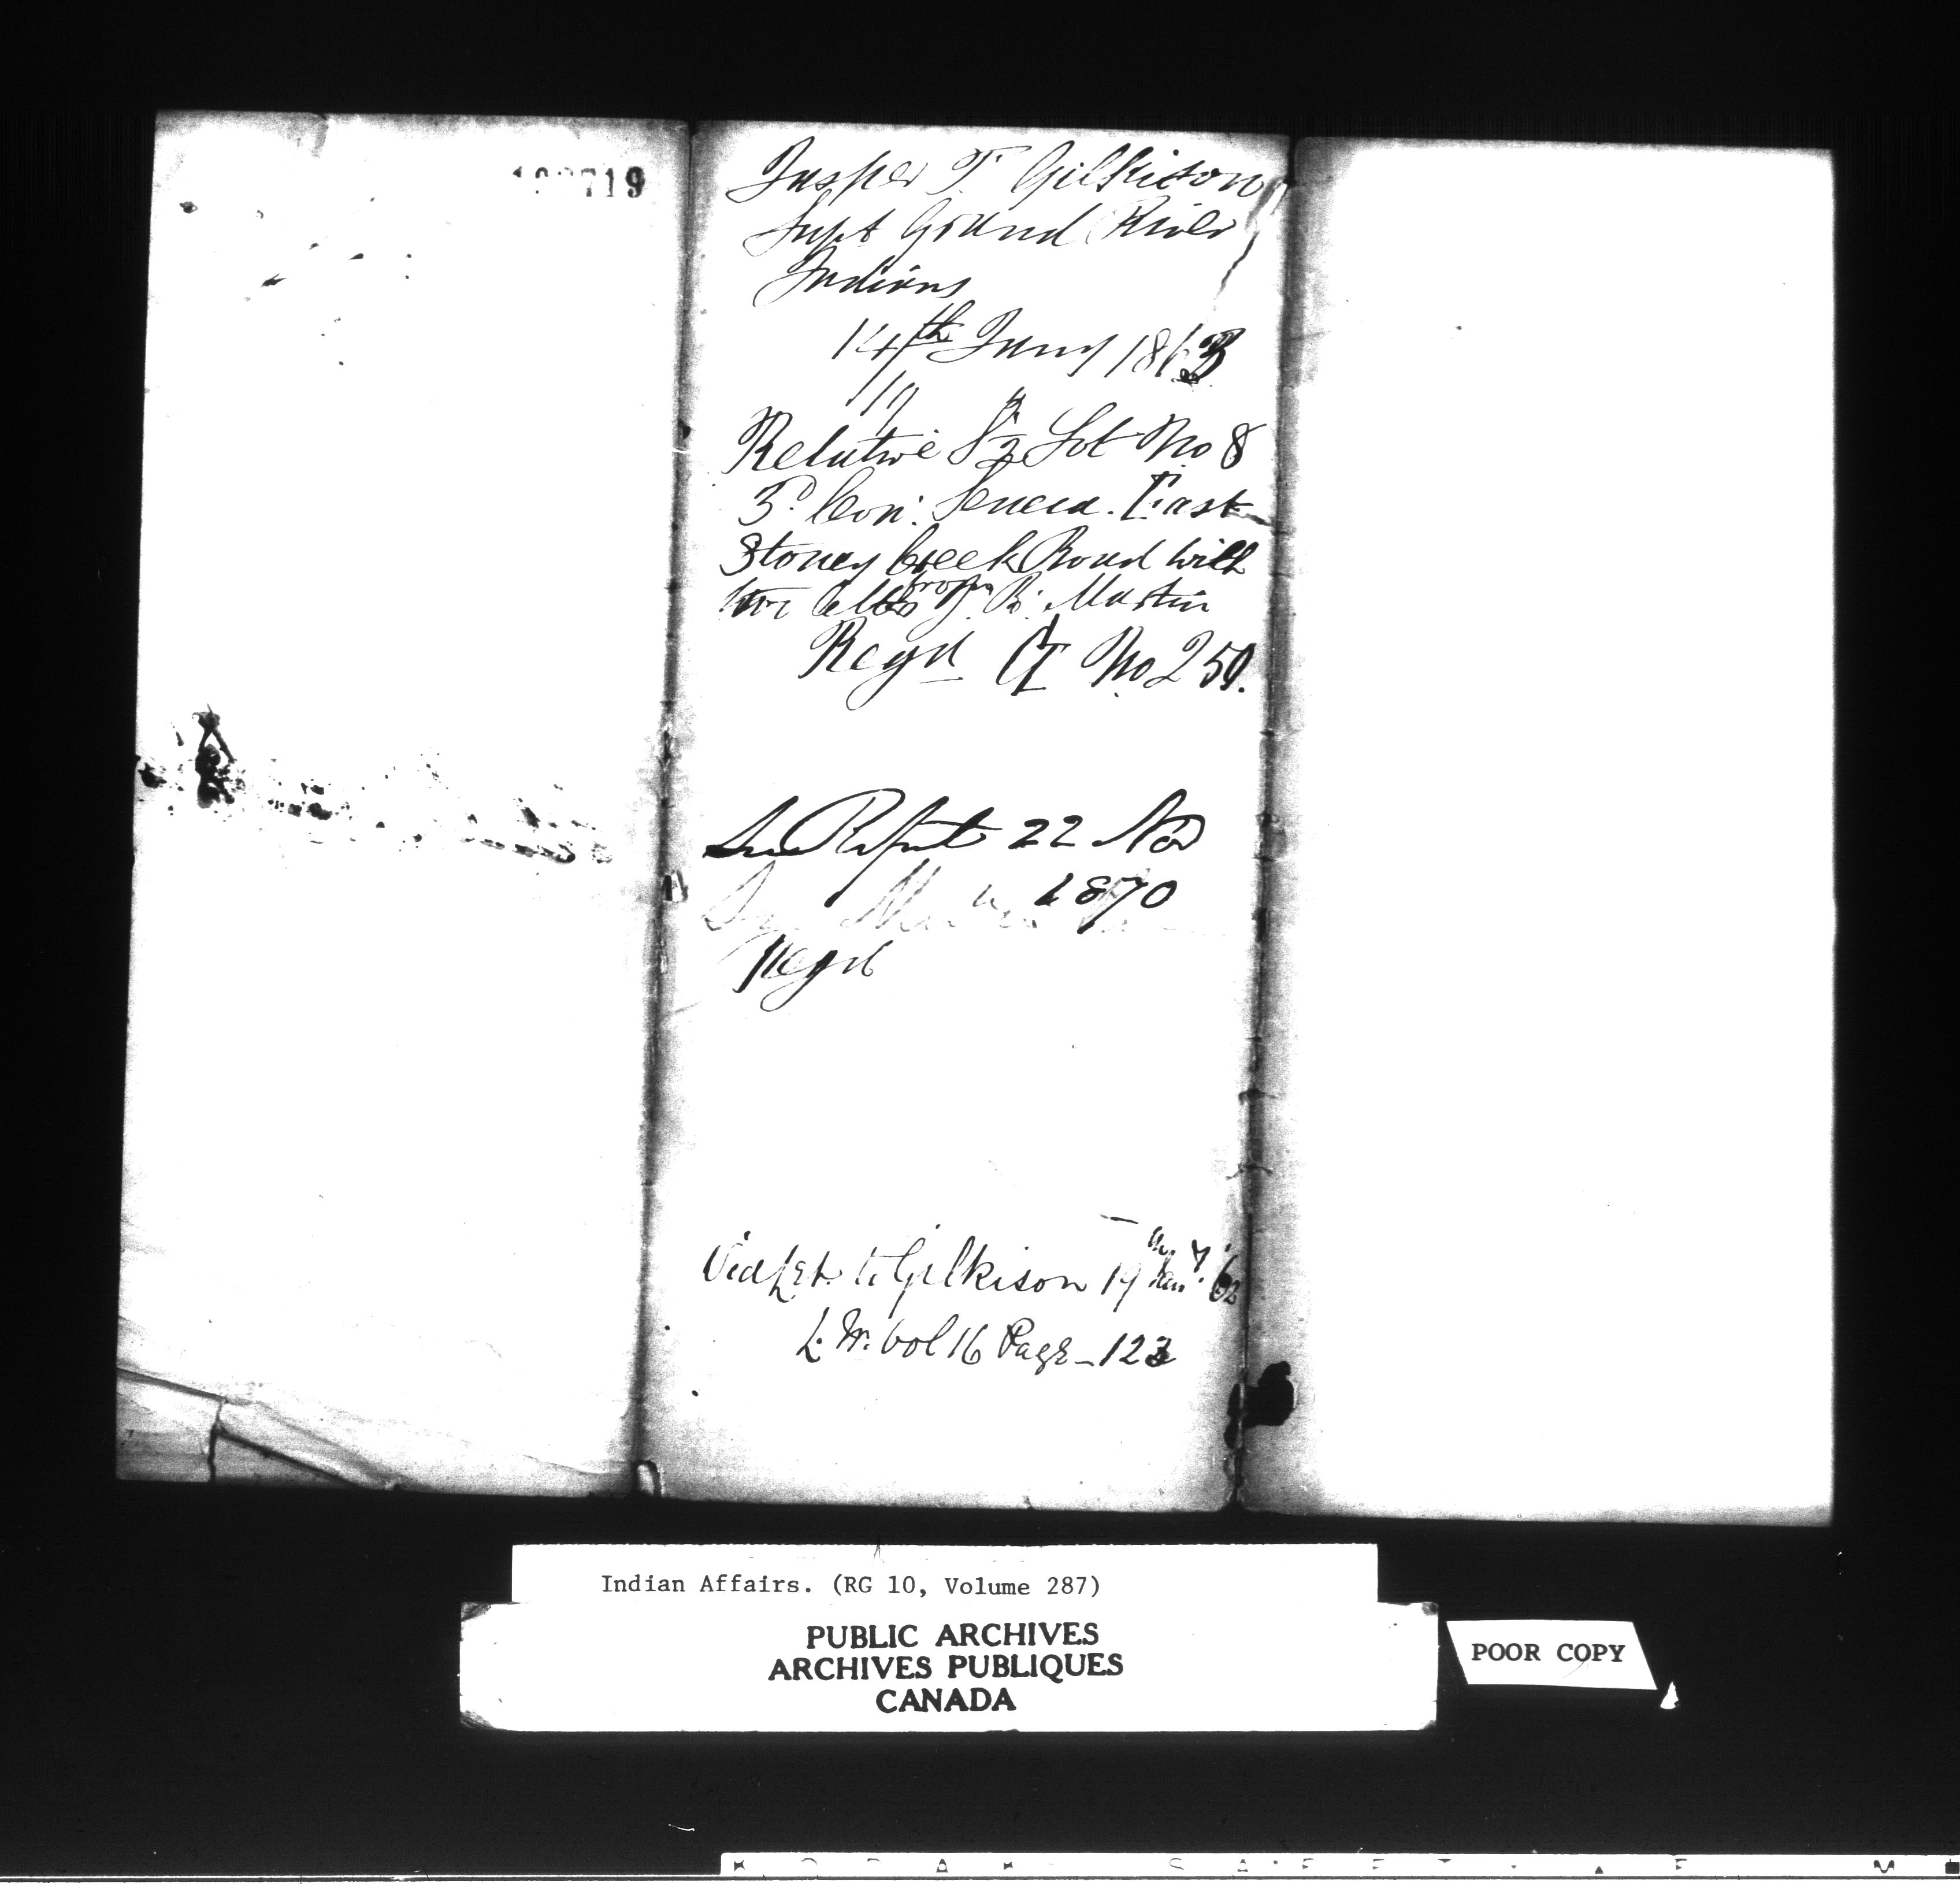 719
Jasper T. Gilkison
Supt Grand River
Indians
14th Jany 1863
19
Relative S½ Lot No 8
3d Con: Seneca. East
Stoney Creek Road with
two letters from J. R. Martin
Regd No 251.
See Report 22 Nov
1870
Regd
Vid Let. to Gilkison 19 Jany. 62
L. M. Vol 16 Page - 123
Indian Affairs. (RG 10, Volume 287)
PUBLIC ARCHIVES
ARCHIVES PUBLIQUES
CANADA
POOR COPY